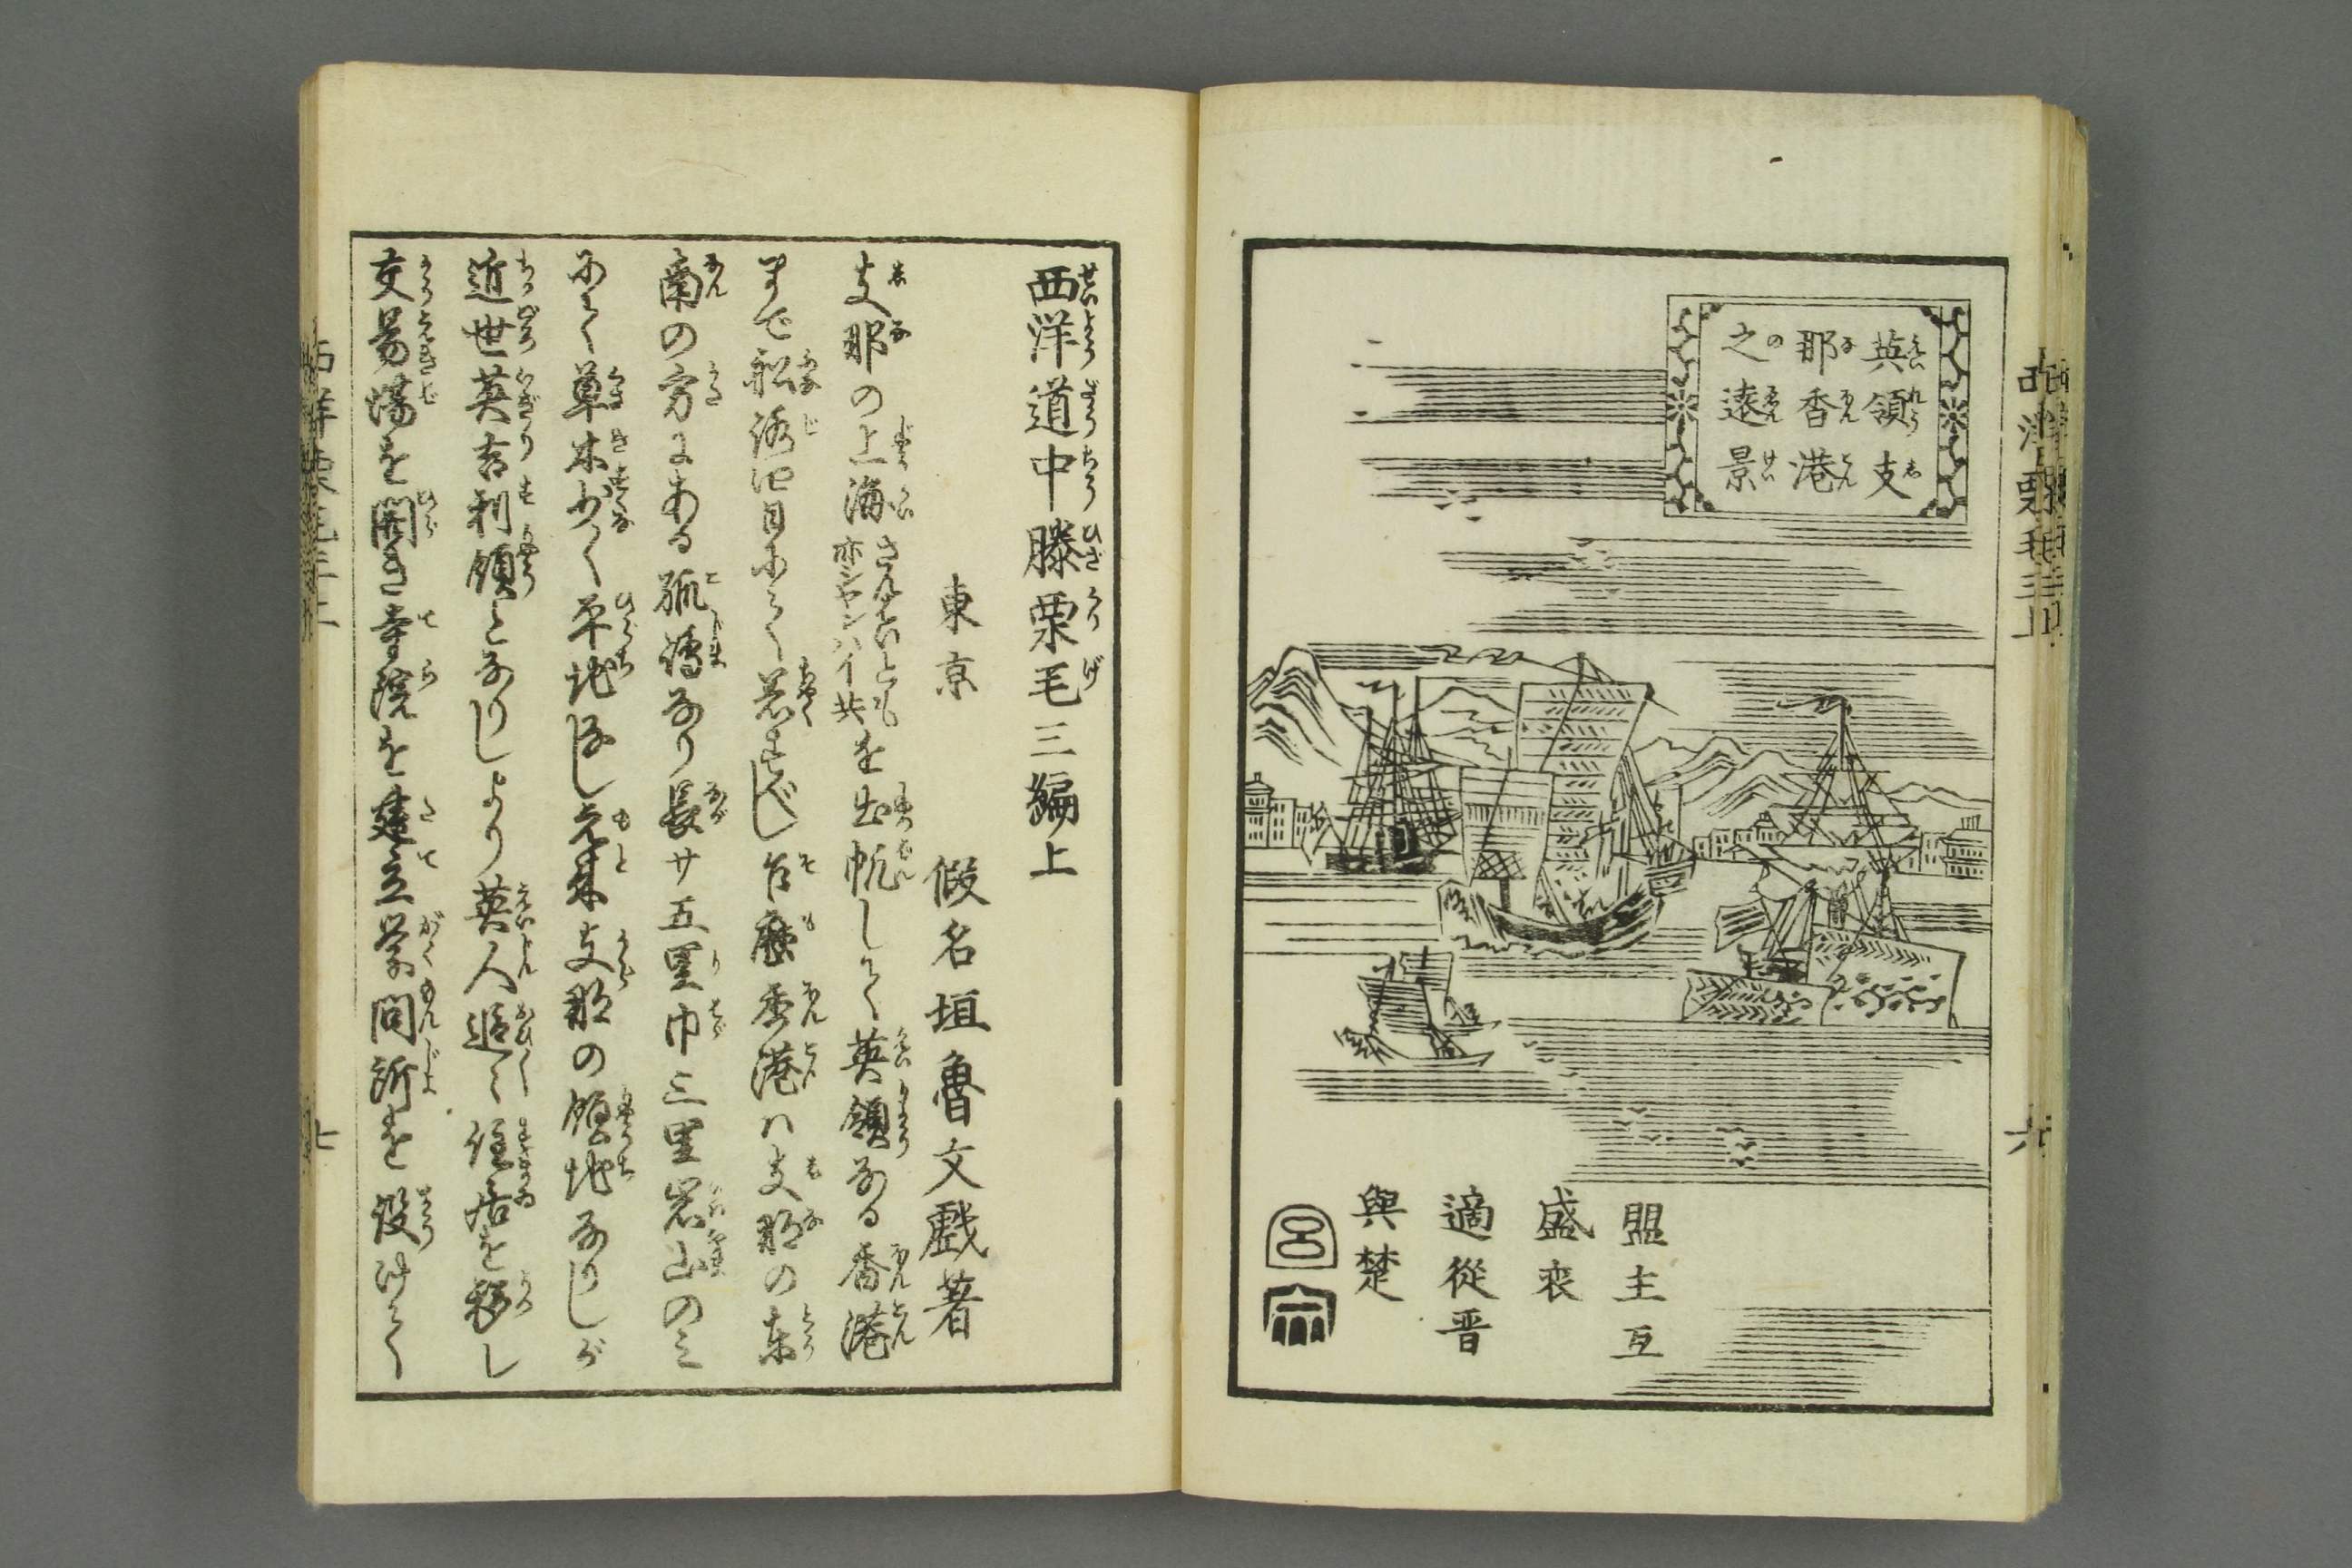 英領支
那香港
之遠景
盟主互
盛衰
適從晋
與楚
呂
宗
西洋道中膝栗毛三編上
東京 假名垣魯文戯著
支那の上海さんかいとも亦シヤンハイ共を出帆して英領なる香港
まで船路四日にして着すべし台歴香港ハ支那の東
南の方にある孤嶋なり長サ五里巾三里岩山のミ
にて草木少く平地なし元来支那の領地なりしが
近世英吉利領となりしより英人追〻住居を移し
交易場を開き寺院を建立学問所を設けて